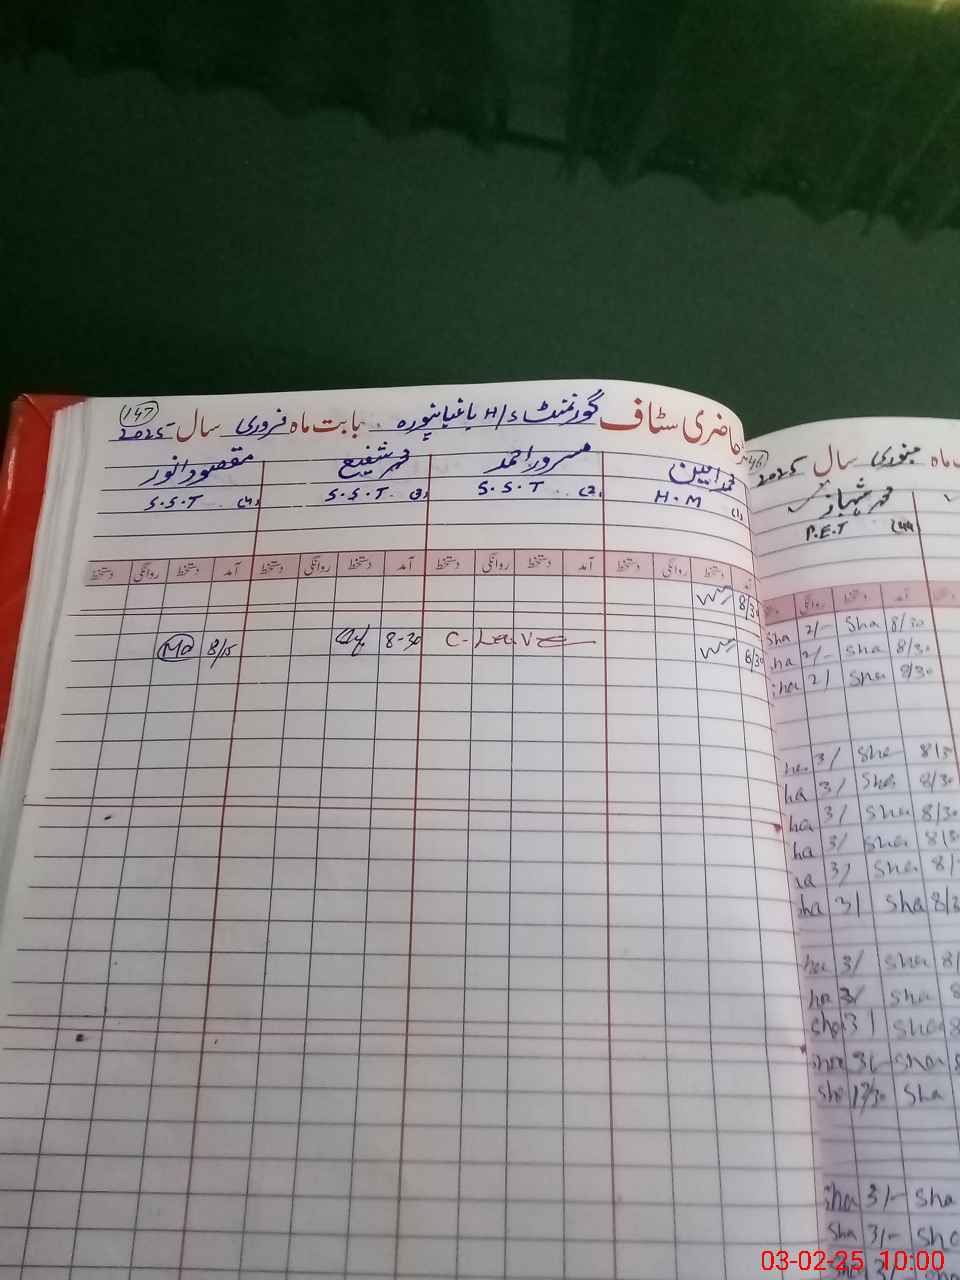 حاضری سٹاف گورنمنٹ H/S باغبانپورہ بابت ماہ فروری سال 2025
147
محمد امین مسرور احمد محمد شفیع مقصود انور
H.M (1) S.S.T (2) S.S.T (3) S.S.T (4)
آمد دستخط روانگی دستخط آمد دستخط روانگی دستخط آمد دستخط روانگی دستخط آمد دستخط روانگی دستخط
8/30
8/30 C-Leave 8-30 8/15 Ma
146
ماہ جنوری سال 2025
محمد شہباز
P.E.T (44)
آمد دستخط روانگی
8/30 Sha 2/- Sha
8/30 Sha 2/- ha
8/30 Sha 2/ ha
Sha 3/
8/30 Sha 3/ ha
8/30 Sha 3/ ha
Sha 3/ ha
Sha 3/
Sha 3/ ha
Sha 3/
Sha 3/ ha
Sha 3/
Sha 3/-
Sha 12/30 Sha
Sha 3/-
3/- Sha
3/
03-02-25 10:00